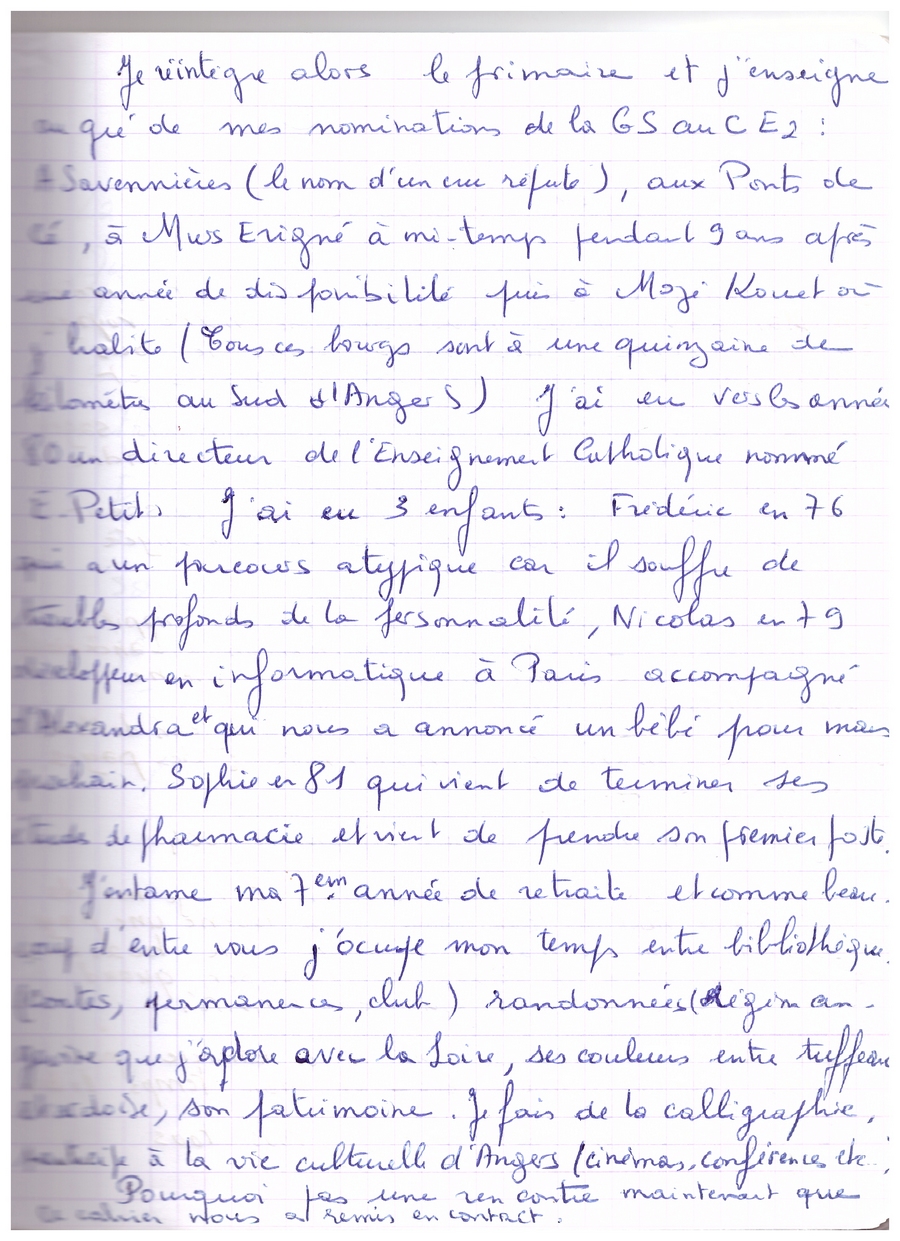 Je réintègre alors le primaire et j'enseigne
au gré de mes nominations de la GS au CE2 :
A Savennières (le nom d'un cru réputé), aux Ponts de
Cé, à Mûrs Erigné à mi-temps pendant 9 ans après
une année de disponibilité puis à Mozé /Louet où
j'habite (Tous ces bourgs sont à une quinzaine de
kilomètres au Sud d'Angers) J'ai eu vers les années
80 un directeur de l'Enseignement Catholique nommé
E. Petit. J'ai eu 3 enfants : Frédéric en 76
qui a un parcours atypique car il souffre de
troubles profonds de la personnalité, Nicolas en 79
développeur en informatique à Paris accompagné
d'Alexandra et qui nous a annoncé un bébé pour mars
prochain. Sophie en 81 qui vient de terminer ses
études de pharmacie et vient de prendre son premier poste.
J'entame ma 7em année de retraite et comme beau-
coup d'entre vous j'ocupe mon temps entre bibliothèque
(contes, permanences, club) randonnées (Région an-
gevine que j'adore avec la Loire, ses couleurs entre tuffeau
et ardoise, son patrimoine. Je fais de la calligraphie,
participe à la vie culturelle d'Angers (cinémas, conférences etc...)
Pourquoi pas une rencontre maintenant que
ce cahier nous a remis en contact.